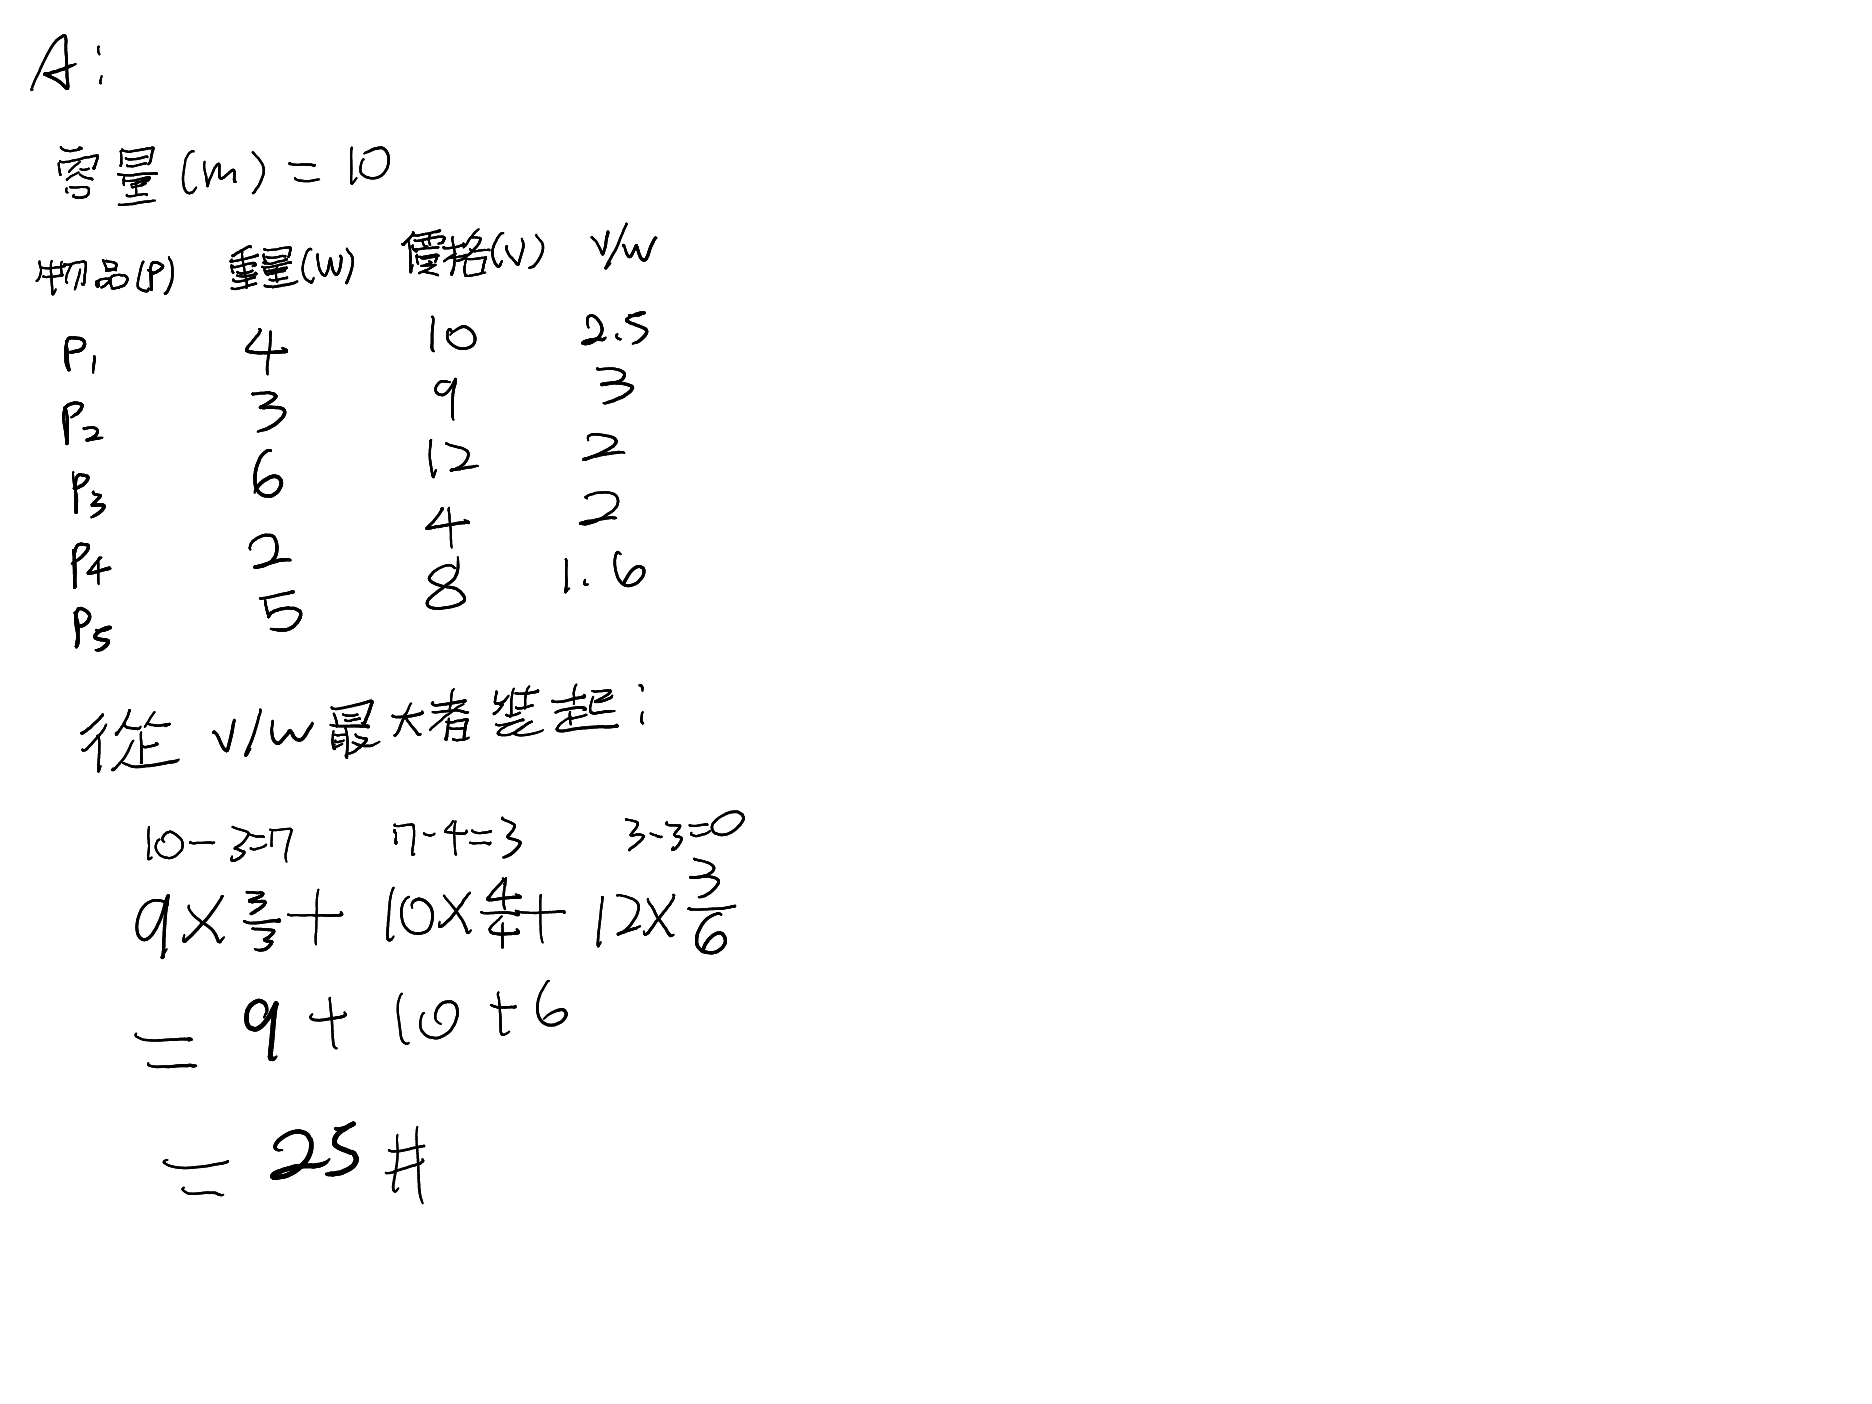 A:
容量(m)=10
物品(P) 重量(W) 價格(V) V/W
P1 4 10 2.5
P2 3 9 3
P3 6 12 2
P4 2 4 2
P5 5 8 1.6
從 V/W最大者裝起:
10-3=7 7-4=3 3-3=0
9×3/3+10×4/4+12×3/6
=9+10+6
=25#